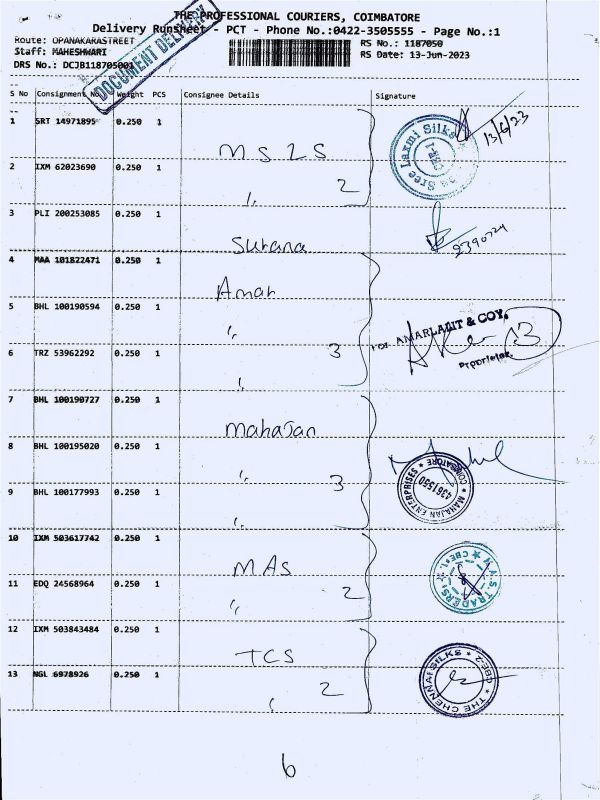 THE PROFESSIONAL COURIERS, COIMBATORE
Delivery Runsheet - PCT - Phone No.:0422-3505555 - Page No.:1
Route: OPANAKARASTREET RS No.: 1187050
Staff: MAHESHWARI RS Date: 13-Jun-2023
DRS No.: DCJB118705001
DOCUMENT DELIVERY
S No Consignment No. Weight PCS Consignee Details Signature
1 SRT 14971895 0.250 1 MSLS
Sree Laxmi Silks
13/6/23
2 IXM 62023690 0.250 1 " 2
3 PLI 200253085 0.250 1 Surana
4 MAA 101822471 0.250 1 Amar
5 BHL 100190594 0.250 1 "
For AMARLALIT & COY,
Proprietor
6 TRZ 53962292 0.250 1 " 3
7 BHL 100190727 0.250 1 Mahajan
8 BHL 100195020 0.250 1 " 3
MAHAJAN ENTERPRISES * COIMBATORE *
4361550
9 BHL 100177993 0.250 1 "
10 IXM 503617742 0.250 1 MAS
11 EDQ 24568964 0.250 1 " 2
M.A.S. TRADERS * CBE-1 *
12 IXM 503843484 0.250 1 TCS
13 NGL 6978926 0.250 1 " 2
* THE CHENNAI SILKS * CBE-2
6